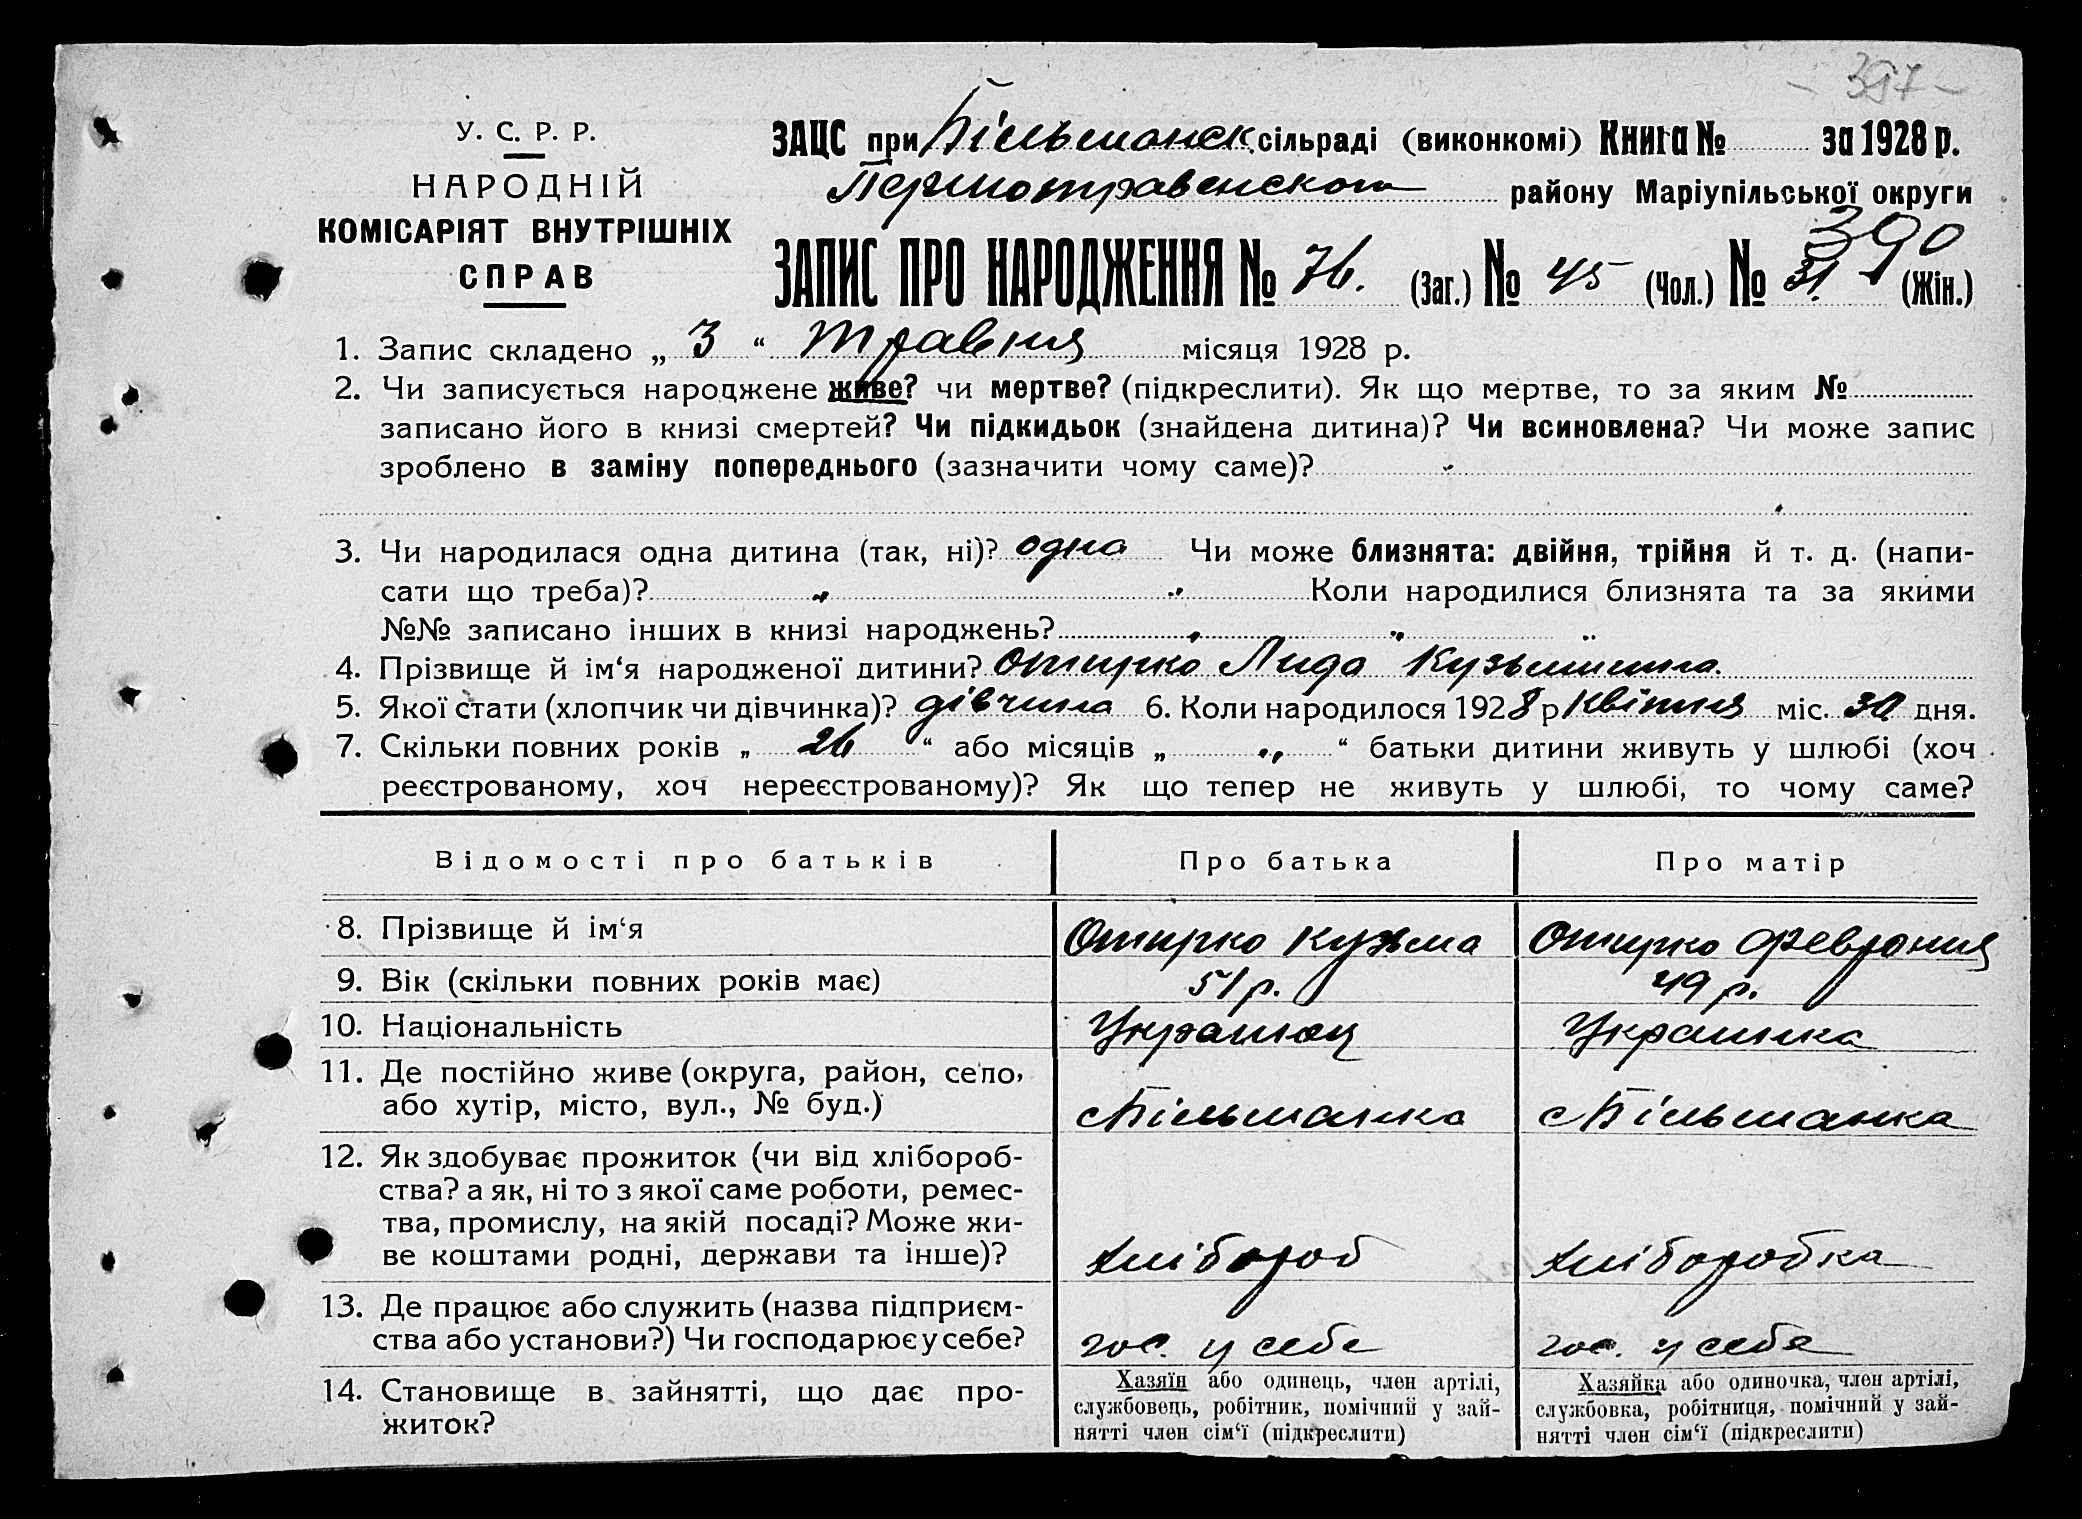 - 397 -
У. С. Р. Р.
НАРОДНІЙ
КОМІСАРІЯТ ВНУТРІШНІХ
СПРАВ
ЗАЦС при Більшанск. сільраді (виконкомі) Книга № за 1928 р.
Першотравенского району Маріупільської округи
390
ЗАПИС ПРО НАРОДЖЕННЯ № 76. (Заг.) № 45 (Чол.) № 31. (Жін.)
1. Запис складено „ 3 “ Травня місяця 1928 р.
2. Чи записується народжене живе? чи мертве? (підкреслити). Як що мертве, то за яким №
записано його в книзі смертей? Чи підкидьок (знайдена дитина)? Чи всиновлена? Чи може запис
зроблено в заміну попереднього (зазначити чому саме)?
3. Чи народилася одна дитина (так, ні)? одна Чи може близнята: двійня, трійня й т. д. (напи-
сати що треба)? „ „ Коли народилися близнята та за якими
№№ записано інших в книзі народжень? „ „ „
4. Прізвище й ім‘я народженої дитини? Отирко Лида Кузьминина.
5. Якої стати (хлопчик чи дівчинка)? дівчина 6. Коли народилося 1928 р Квітня міс. 30 дня.
7. Скільки повних років „ 26 “ або місяців „ „ “ батьки дитини живуть у шлюбі (хоч
реєстрованому, хоч нереєстрованому)? Як що тепер не живуть у шлюбі, то чому саме?
Відомості про батьків Про батька Про матір
8. Прізвище й ім‘я Отирко Кузьма Отирко Феврония
9. Вік (скільки повних років має) 51 р. 49 р.
10. Національність Украінец Украинка
11. Де постійно живе (округа, район, село,
або хутір, місто, вул., № буд.) с Більшанка с Більшанка
12. Як здобуває прожиток (чи від хлібороб-
ства? а як, ні то з якої саме роботи, ремес-
тва, промислу, на якій посаді? Може жи-
ве коштами родні, держави та інше)? Хлібороб Хліборобка
13. Де працює або служить (назва підприєм-
ства або установи?) Чи господарює у себе? гос. у себе гос. у себе
14. Становище в зайнятті, що дає про-
житок?
Хазяїн або одинець, член артілі,
службовець, робітник, помічний у зай-
нятті член сім‘ї (підкреслити)
Хазяйка або одиночка, член артілі,
службовка, робітниця, помічний у зай-
нятті член сім‘ї (підкреслити)